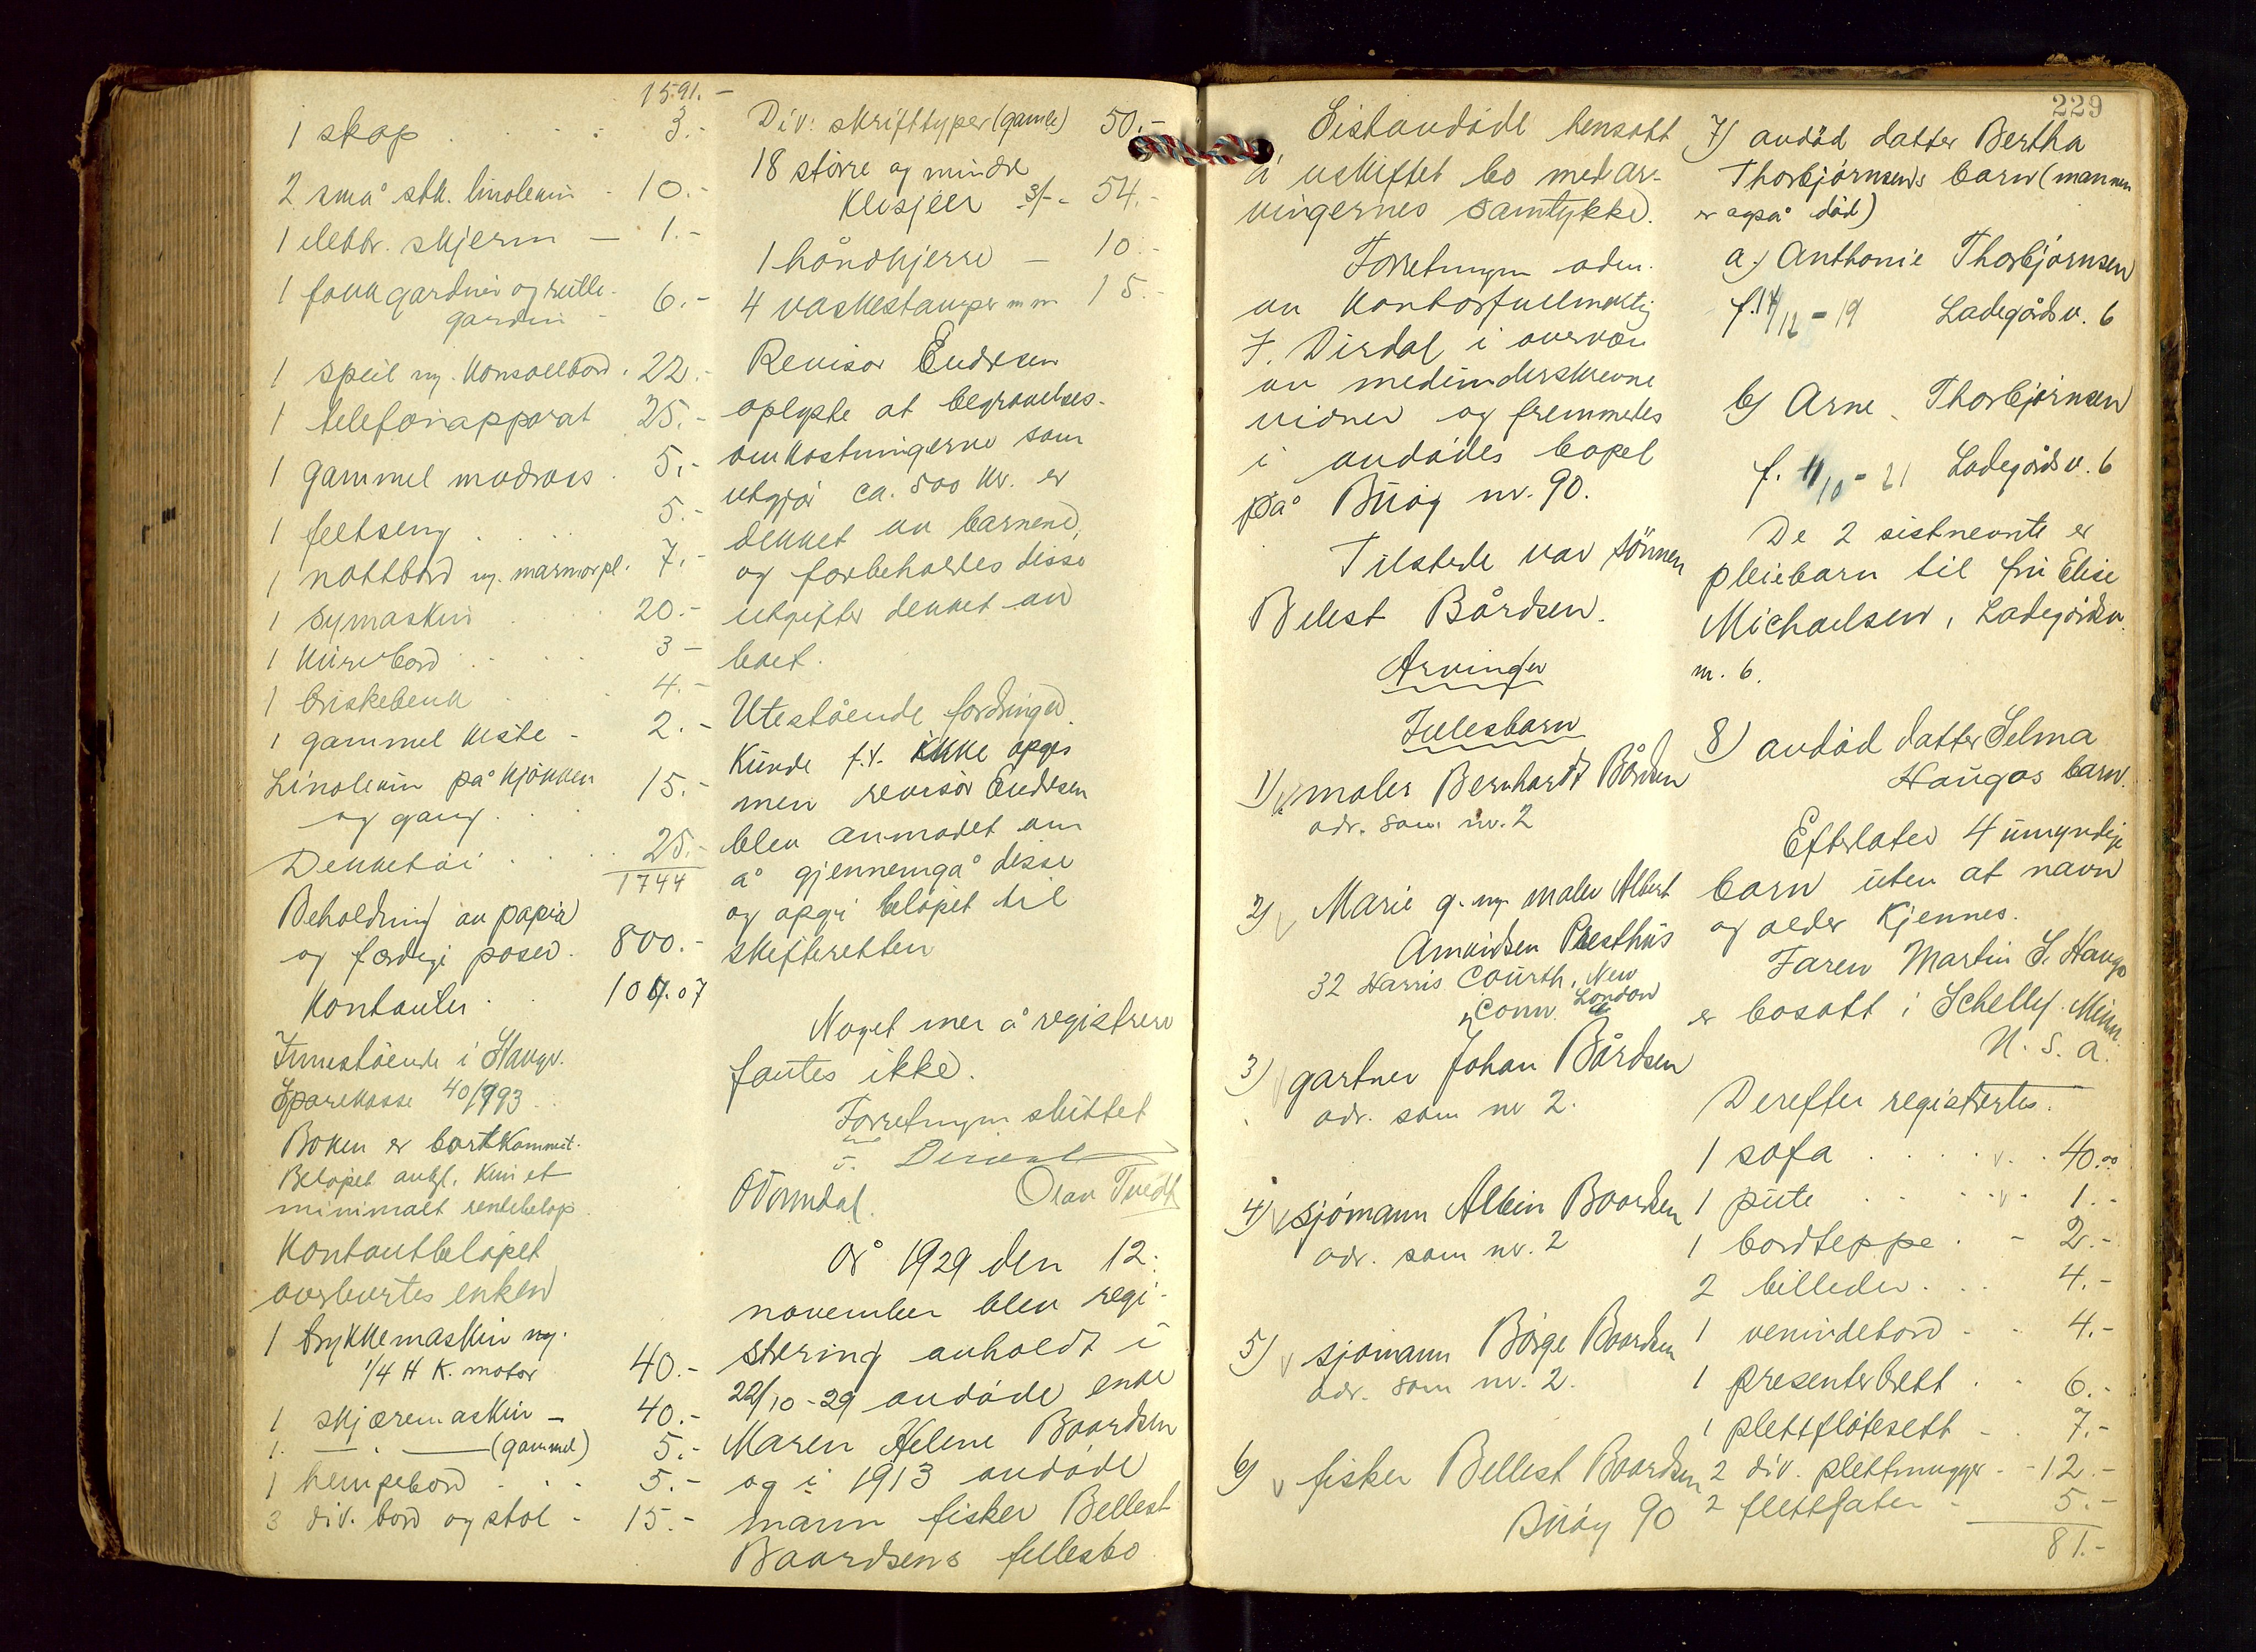 1591.-
1 skap . . . . 3.-
2 små stk. linoleum - 10.-
1 elektr. skjerm — 1.-
1 fonngardner og rulle-
gardin - 6.-
1 speil og konsollbord . 22.-
1 telefonapparat 25.-
1 gammel madrass . 5.-
1 feltseng . . . . 5.-
1 nattbord og marmorpl. 7.-
1 symaskin . . 20.-
1 kurvbord . . . . 3 -
1 briskebenk . . 4.-
1 gammel kiste - 2.-
Linoleum på kjøkken
og gang . . . 15.-
Dekketøi . . . . . 25.-
1744
Beholdning av papir
og færdige poser . 800.-
Kontanter . . 107.07
Innestående i Stavgr.
Sparekasse 40/993 . .
Boken er bortkommet.
Beløpet antgl. kun et
minimalt rentebeløp.
Kontantbeløpet
overlevertes enken
1 trykkemaskin og.
1/4 H K. motor 40.-
1 skjæremaskin - 40.-
1. — . — (gammel) 5.-
1 hempebord . . . 5.-
3 div. bord og stol - 15.-
Div: skrifttyper (gamle) 50.-
18 større og mindre
klisjeer 3/- - 54.-
1 håndkjerre — 10.-
4 vaskestamper m m 15.-
Revisor Endresen
oplyste at begravelses-
omkostningerne som
utgjør ca. 500 kr. er
dekket av barnene,
og forbeholdes disse
utgifter dekket av
boet.
Utestående fordringer.
Kunde f.t. ikke opgis
men revisor Endresen
blev anmodet om
å gjennemgå disse
og opgi beløpet til
skifteretten
Noget mer å registrere
fantes ikke.
Forretningen sluttet
Olav Tvedt
År 1929 den 12.
november blev regi-
strering avholdt i
22/10-29 avdøde enke
Maren Helene Baardsen
og i 1913 avdøde
mann fisker Bellest
Baardsens fellesbo
229
Sistavdøde hensatt
i uskiftet bo med ar-
vingernes samtykke.
Forretningen adm.
av kontorfullmektig
F. Dirdal i overvær
av medunderskrevne
vidner og fremmedes
i avdødes bopel
på Buøy nr. 90.
Tilstede var sønnen
Belest Bårdsen.
Arvinger
Fellesbarn
1) v maler Bernhardt Bårdsen
adr. som nr. 2
2) v Marie g. m. maler Albert
Amundsen Presthus
32 Harris Courth, New
London
Conn.
3) v gartner Johan Bårdsen
adr. som nr 2.
4) v sjømann Albin Baardsen
adr. som nr. 2
5) v sjømann Børge Baardsen
adr. som nr. 2.
6) v fisker Bellest Baardsen
Buøy 90
7) avdød datter Bertha
Thorbjørnsens barn (mannen
er også død)
a.) Anthonie Thorbjørnsen
f. 14/12 - 19 Ladegårdsv. 6
b) Arne Thorbjørnsen
f. 11/10 - 21 Ladegårdsv. 6
De 2 sistnevnte er
pleiebarn til fru Elise
Michaelsen, Ladegårdsv.
nr. 6.
8) avdød datter Selma
Haugas barn.
Efterlater 4 umyndige
barn uten at navn
og alder kjennes.
Faren Martin S. Hauga
er bosatt i Schelly. Minn.
U. S. A.
Derefter registrertes.
1 sofa . . . . . v. . 40.00
1 pute . . . . v . 1.-
1 bordteppe . - 2.-
2 billeder. . . 4.-
1 venindebord . . 4.-
1 presenterbrett . . 6.-
1 plettfløtesett - . 7.-
2 div. plettmugger - - 12.-
2 plettfater - 5.-
81.-